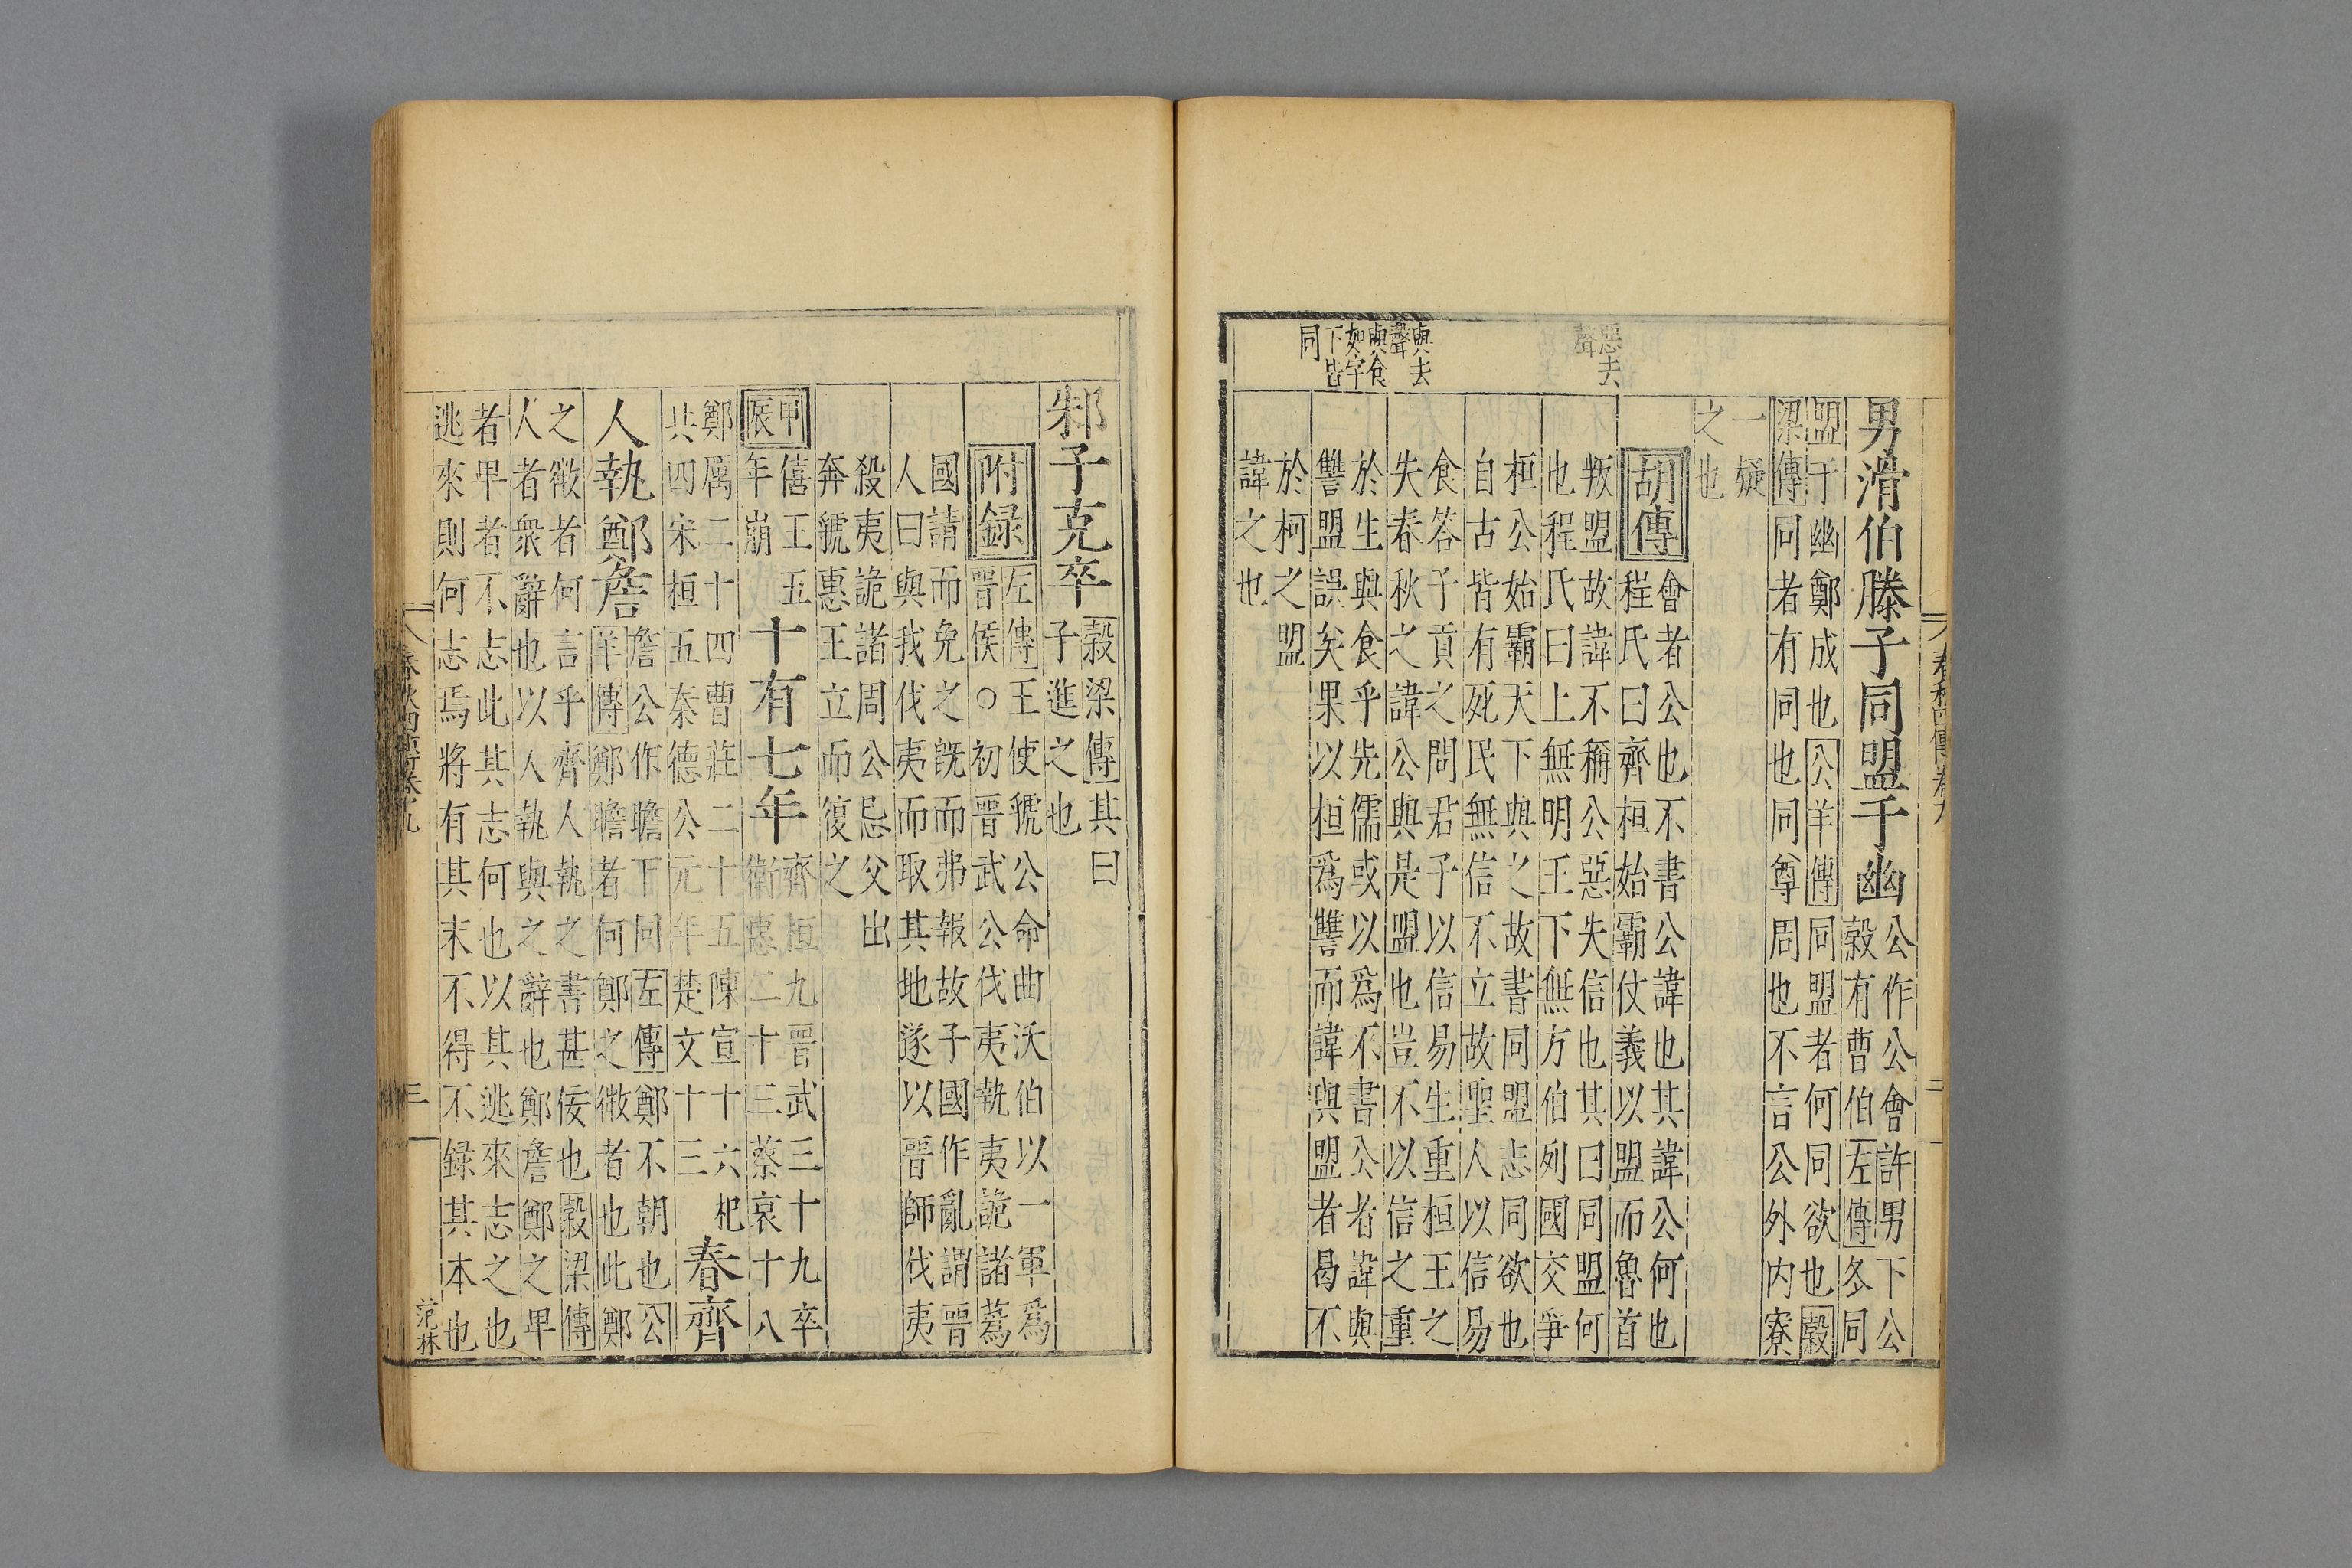 春秋四傳卷九
二
男滑伯滕子同盟于幽
公作公會許男下公
穀有曹伯左傳冬同
盟于幽鄭成也公羊傳同盟者何同欲也穀
梁傳同者有同也同尊周也不言公外内寮
一疑
之也
惡去
聲
與去
聲
與食
如字
下皆
同
胡傳
會者公也不書公諱也其諱公何也
程氏曰齊桓始霸仗義以盟而魯首
叛盟故諱不稱公惡失信也其曰同盟何
也程氏曰上無明王下無方伯列國交爭
桓公始霸天下與之故書同盟志同欲也
自古皆有死民無信不立故聖人以信易
食答子貢之問君子以信易生重桓王之
失春秋之諱公與是盟也豈不以信之重
於生與食乎先儒或以爲不書公者諱與
讐盟誤矣果以桓爲讐而諱與盟者曷不
於柯之盟
諱之也
邾子克卒
穀梁傳其曰
子進之也
附録
左傳王使虢公命曲沃伯以一軍爲
晉侯○初晉武公伐夷執夷詭諸蒍
國請而免之旣而弗報故子國作亂謂晉
人曰與我伐夷而取其地遂以晉師伐夷
殺夷詭諸周公忌父出
奔虢惠王立而復之
甲
辰
僖王五
年崩
十有七年
齊桓九晉武三十九卒
衛惠二十三蔡哀十八
鄭厲二十四曹莊二十五陳宣十六杞
共四宋桓五秦德公元年楚文十三
春齊
人執鄭詹
詹公作瞻下同左傳鄭不朝也公
羊傳鄭瞻者何鄭之微者也此鄭
之微者何言乎齊人執之書甚佞也穀梁傳
人者衆辭也以人執與之辭也鄭詹鄭之卑
者卑者不志此其志何也以其逃來志之也
逃來則何志焉將有其末不得不録其本也
春秋四傳卷九
三
范林